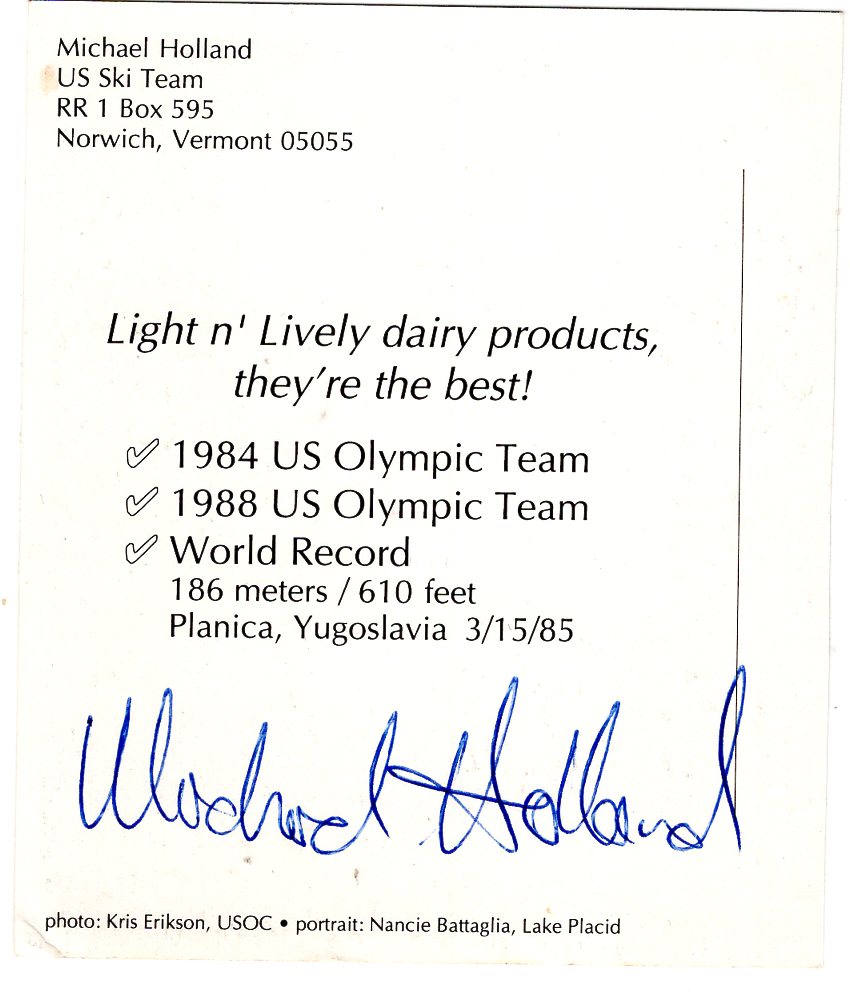 Michael Holland
US Ski Team
RR 1 Box 595
Norwich, Vermont 05055
Light n' Lively dairy products,
they're the best!
✓ 1984 US Olympic Team
✓ 1988 US Olympic Team
✓ World Record
186 meters / 610 feet
Planica, Yugoslavia 3/15/85
Michael Holland
photo: Kris Erikson, USOC • portrait: Nancie Battaglia, Lake Placid